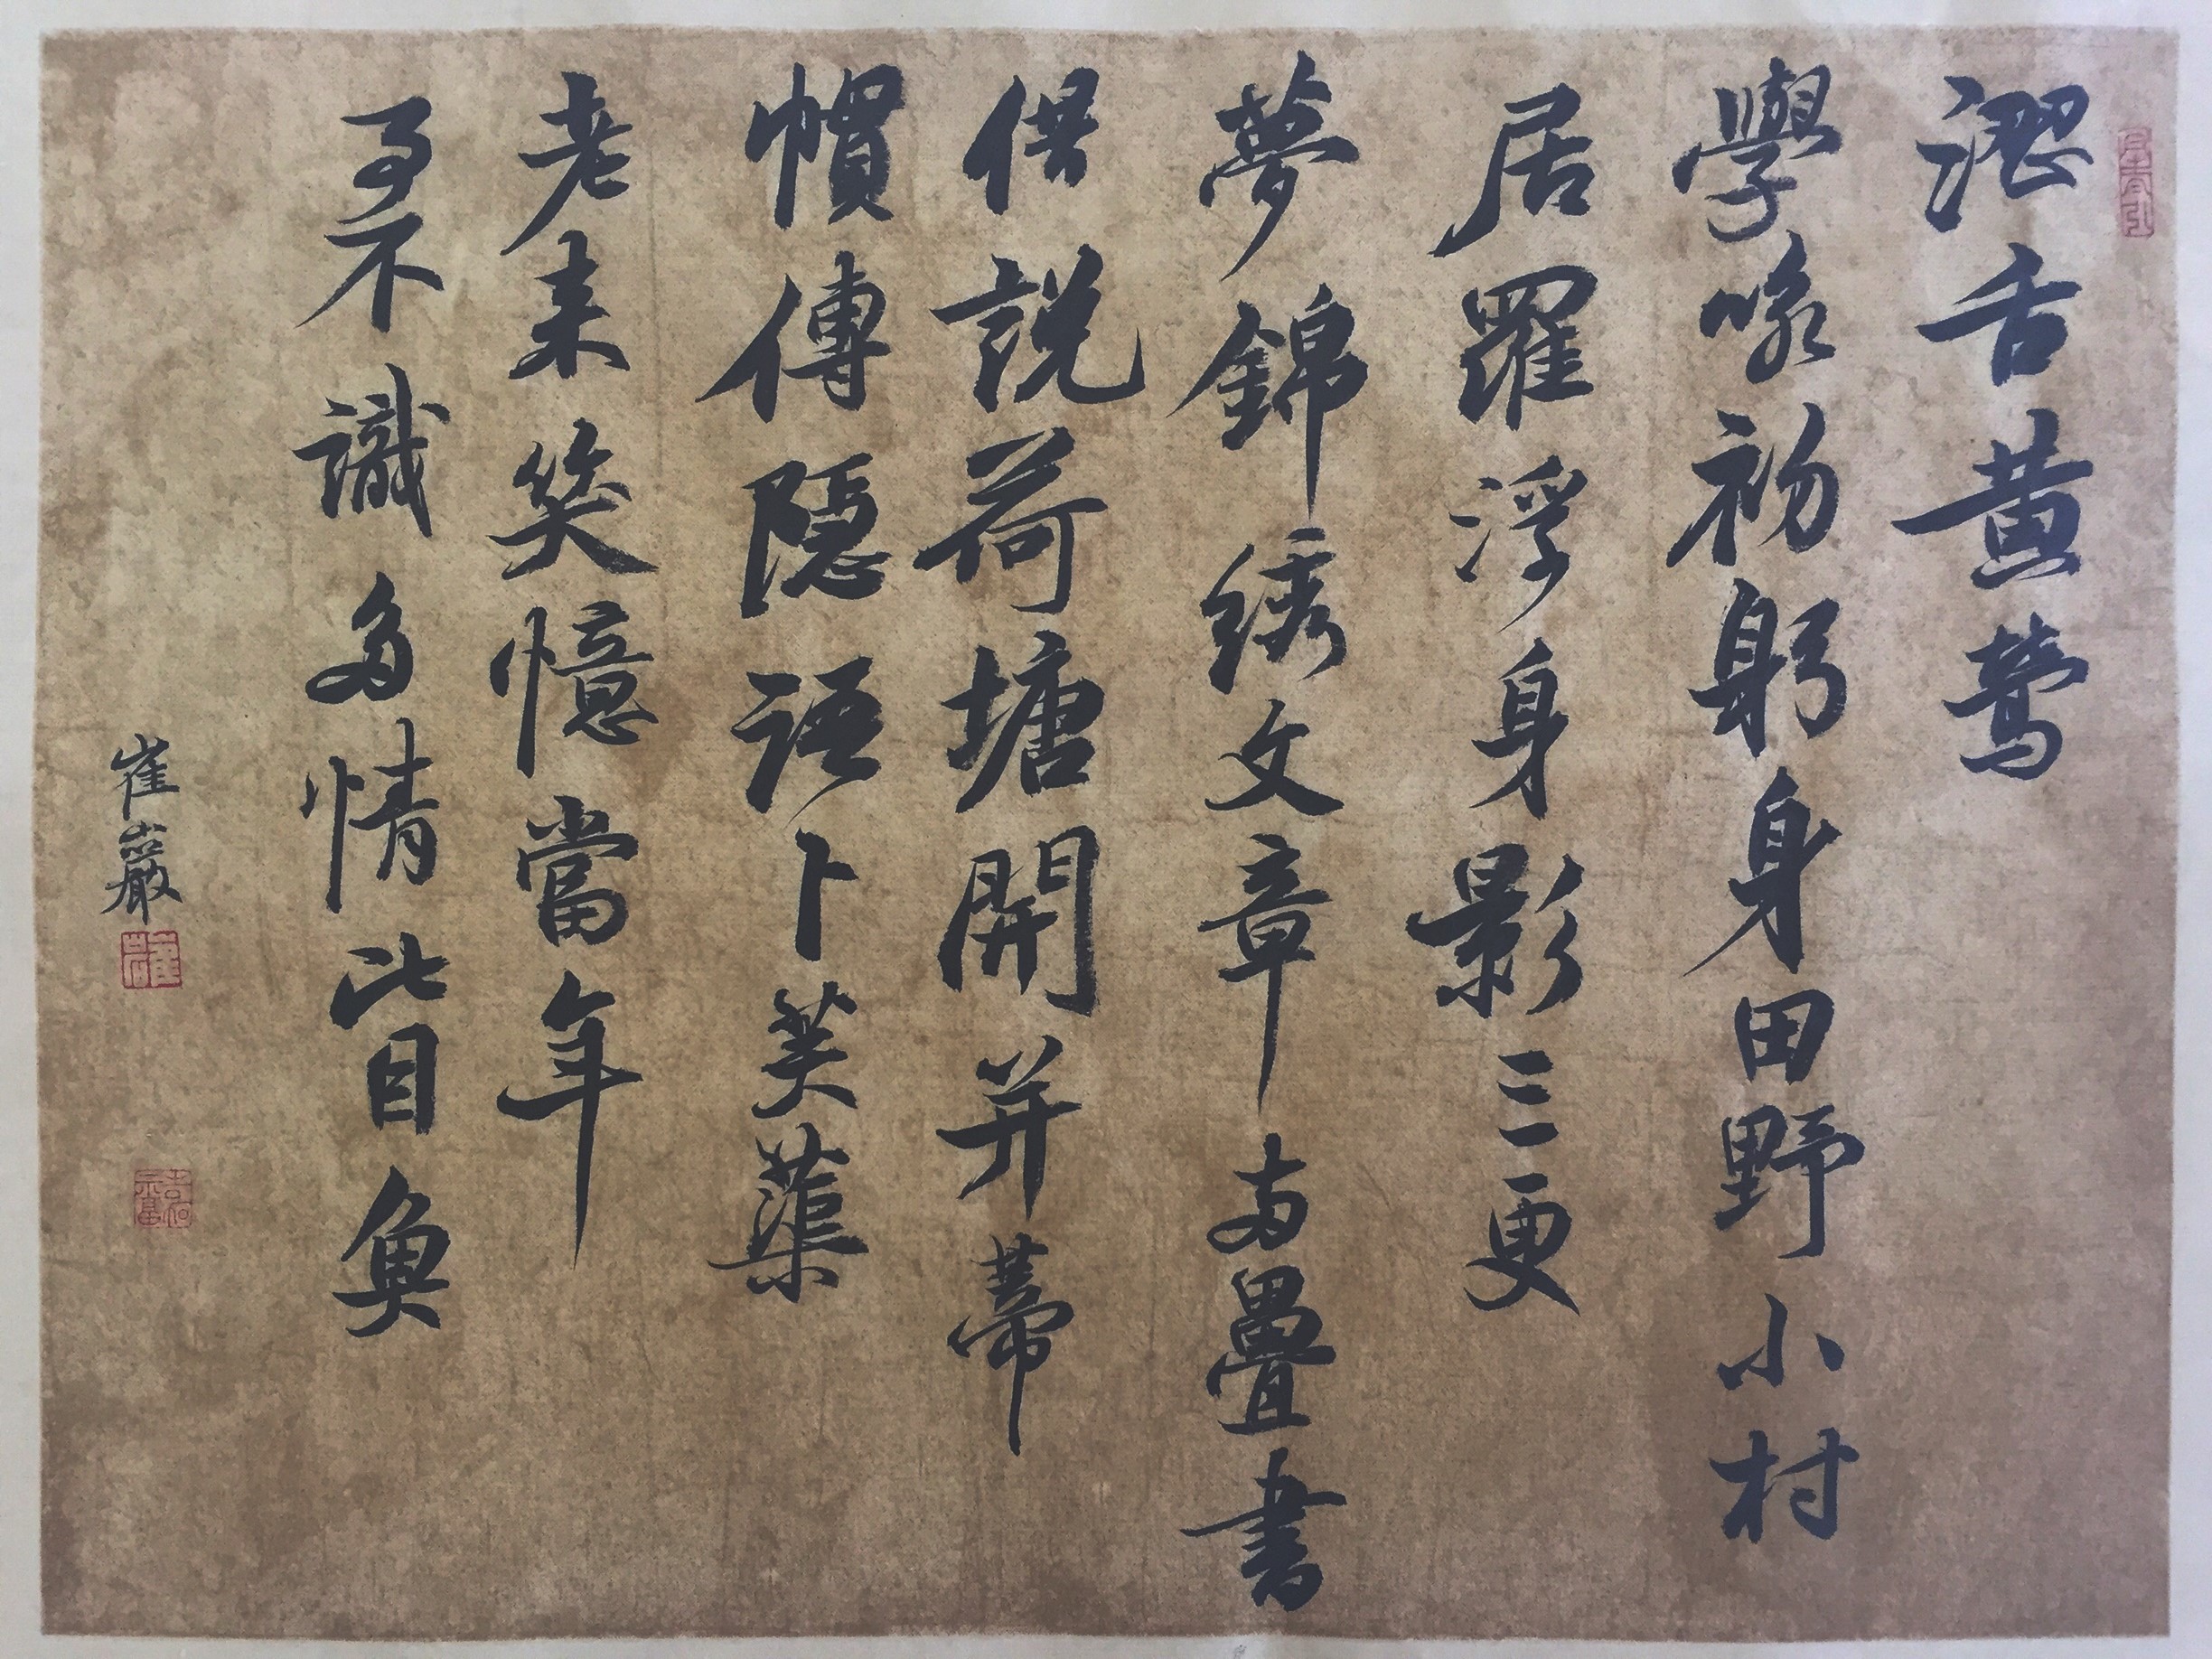 澀舌黄鶯
學啼初躬身田野小村
居羅浮身影三更
夢錦綉文章两疊書
借說荷塘開并蒂
慣傳隱語卜芙蕖
老来笑憶當年
事不識多情比目魚
崔巖